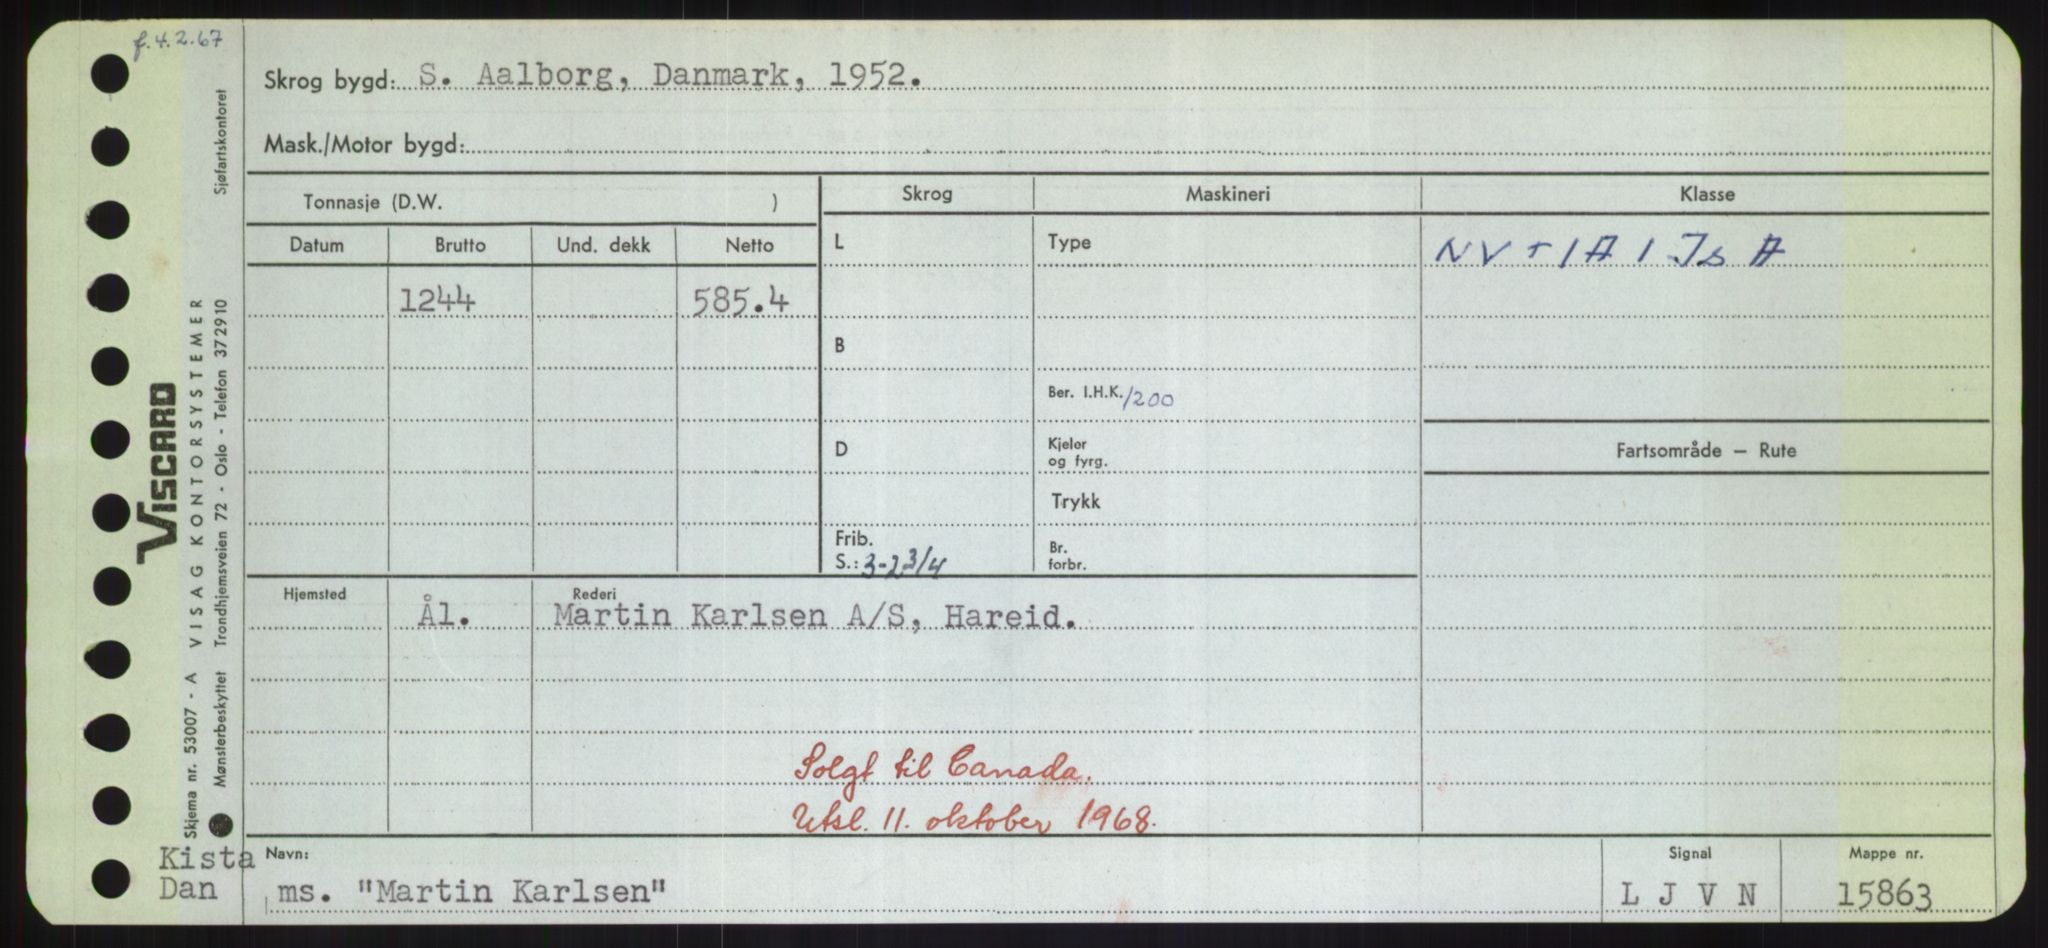 f. 4.2.67
Skrog bygd: S. Aalborg, Danmark, 1952.
Mask./Motor bygd:
Tonnasje (D.W. )
Skrog
Maskineri
Klasse
Datum
Brutto
Und. dekk
Netto
L
Type
NV + 1 A 1 Is A
1244
585.4
B
Ber. I.H.K. 1200
D
Kjeler
og fyrg.
Fartsområde – Rute
Trykk
Frib.
S.: 3-2 3/4
Br.
forbr.
Hjemsted
Rederi
Ål.
Martin Karlsen A/S, Hareid.
Solgt til Canada.
Utsl. 11. oktober 1968.
Kista
Dan
Navn:
ms. "Martin Karlsen"
Signal
L J V N
Mappe nr.
15863
VISCARD
Skjema nr. 53007 - A VISAG KONTORSYSTEMER
Mønsterbeskyttet Trondhjemsveien 72 - Oslo - Telefon 372910 Sjøfartskontoret